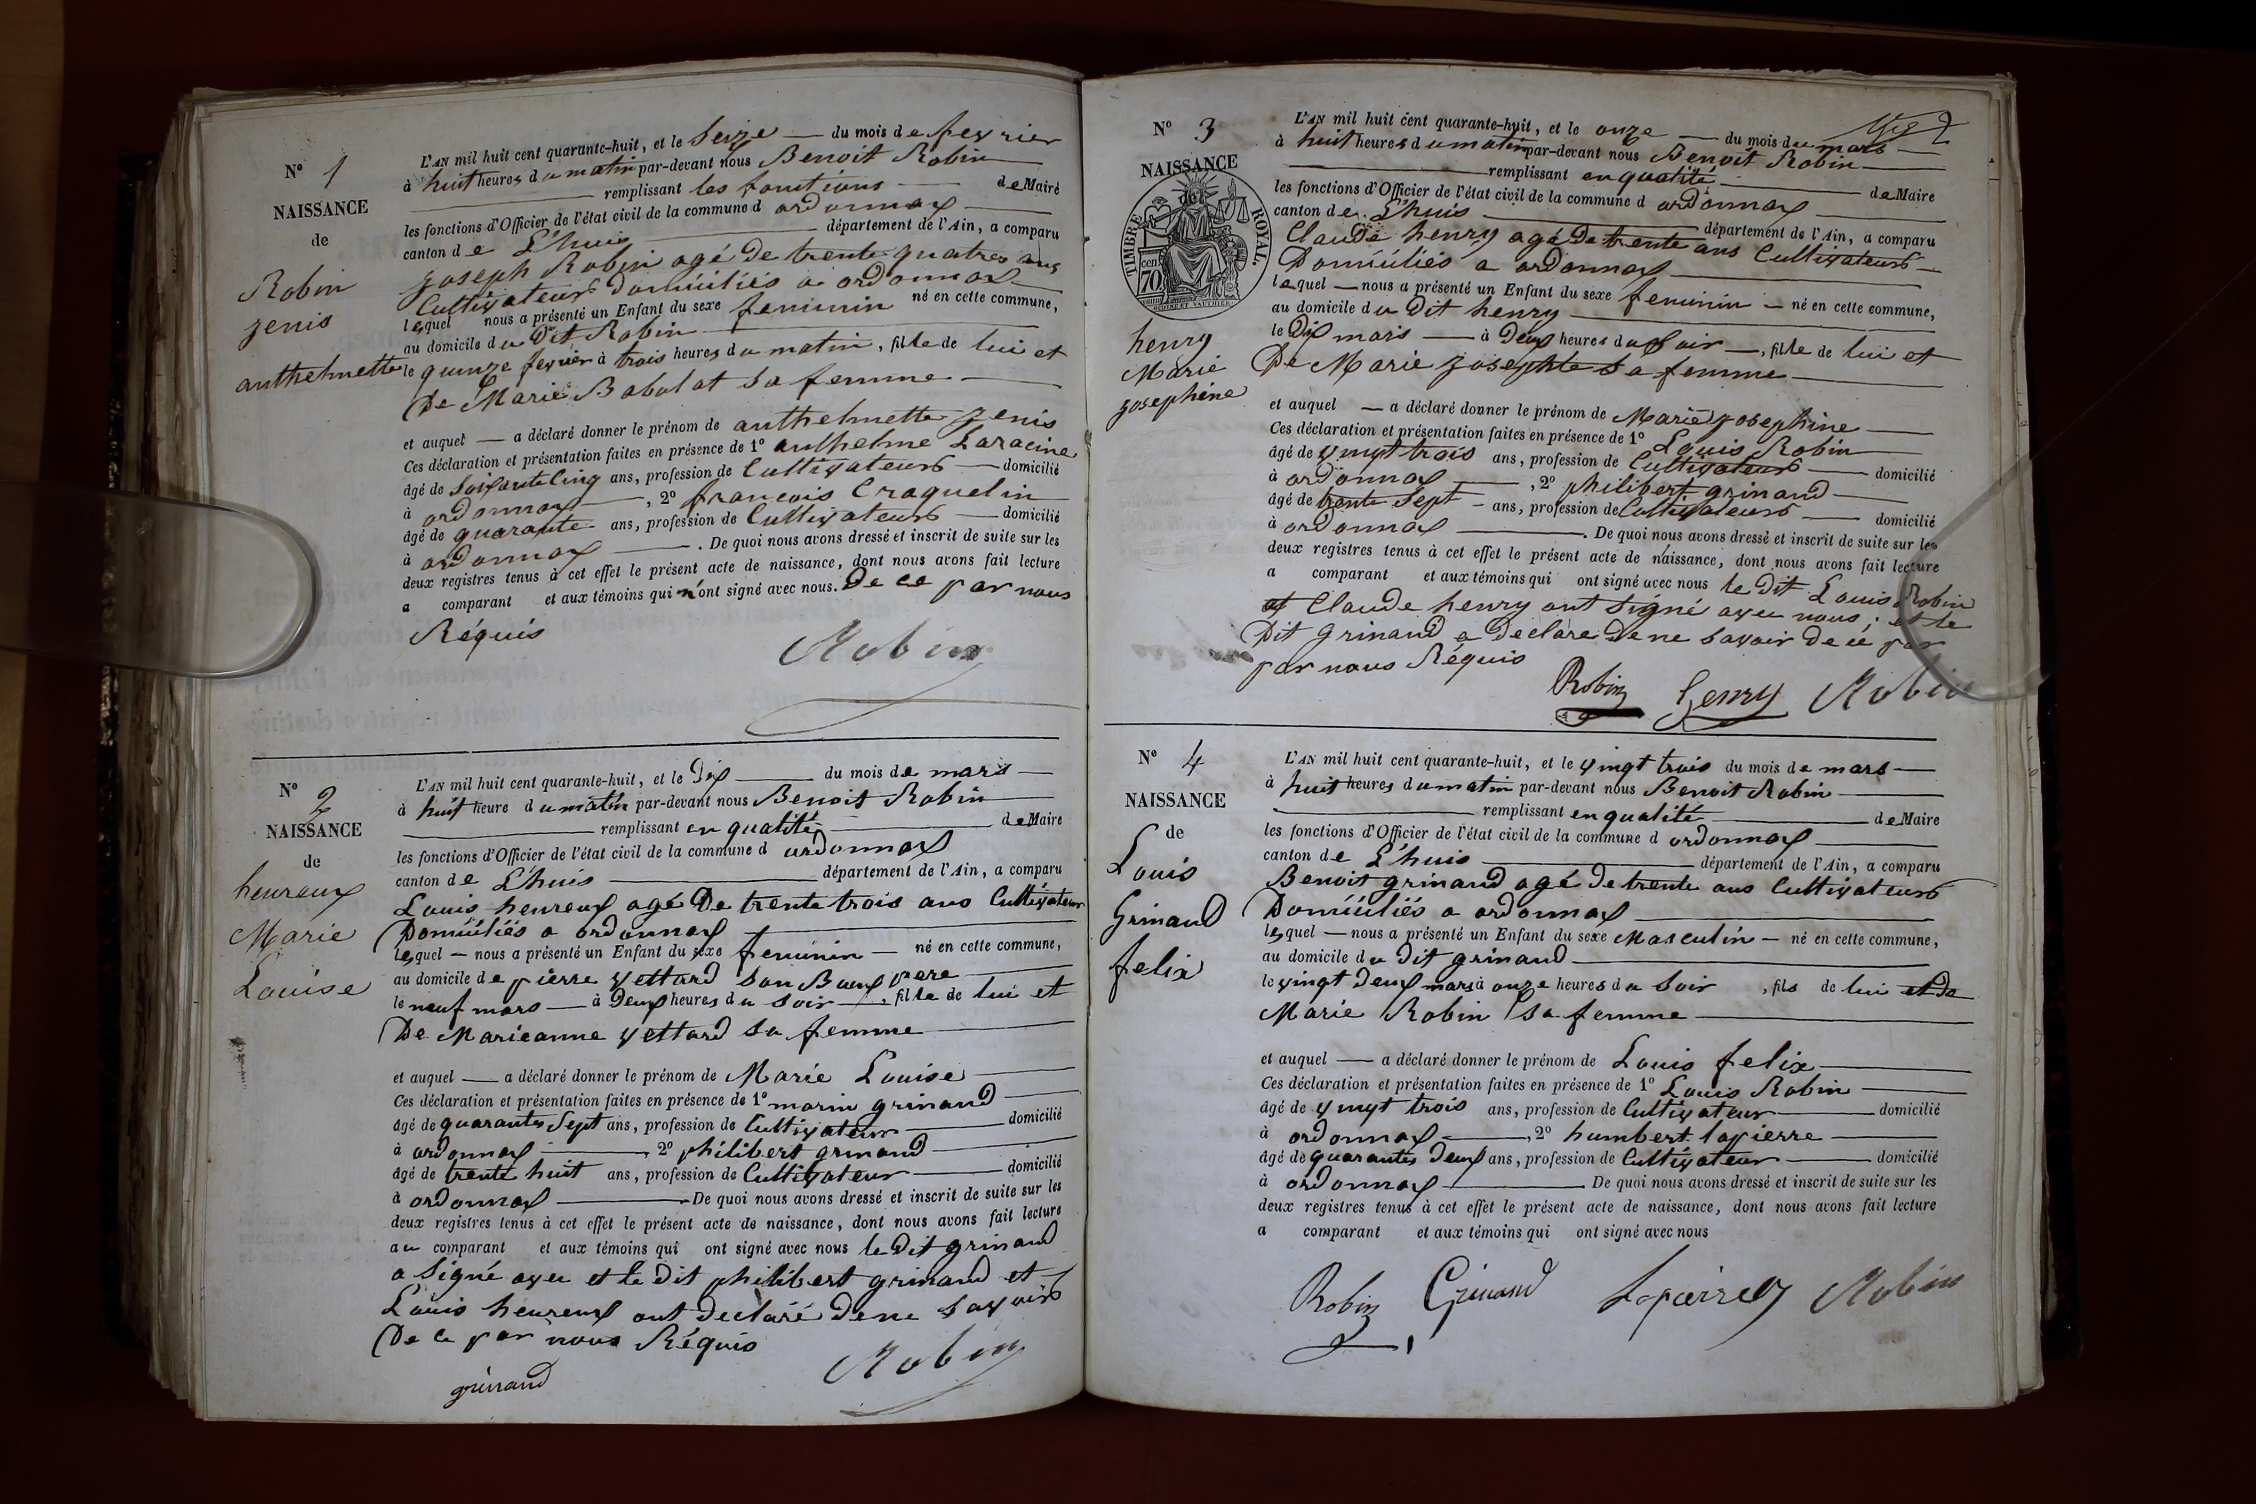 Nº 1
NAISSANCE
de
Robin
zenis
anthelmette
L'AN mil huit cent quarante-huit, et le Seize du mois de fevrier
à huit heures du matin par-devant nous Benoit Robin
remplissant les fonctions de Maire
les fonctions d'Officier de l'état civil de la commune d ordonnax
canton de L'huis département de l'Ain, a comparu
Joseph Robin agé De trente quatres ans
Cultivateurs domiciliés a ordonnax
lequel nous a présenté un Enfant du sexe feminin né en cette commune,
au domicile du Dit Robin
le quinze fevrier à trois heures du matin, fille de lui et
De Marie Babolat Sa femme
et auquel a déclaré donner le prénom de anthelmette zenis
Ces déclaration et présentation faites en présence de 1º anthelme Laracine
âgé de Soixantecinq ans, profession de Cultivateurs domicilié
à ordonnax, 2º francois Craquelin
âgé de quarante ans, profession de Cultivateurs domicilié
à ordonnax. De quoi nous avons dressé et inscrit de suite sur les
deux registres tenus à cet effet le présent acte de naissance, dont nous avons fait lecture
a comparant et aux témoins qui n'ont signé avec nous. De ce par nous
Réquis
Robin
Nº 2
NAISSANCE
de
heureux
Marie
Louise
L'AN mil huit cent quarante-huit, et le Dix du mois de mars
à huit heure du matin par-devant nous Benoit Robin
remplissant en qualité de Maire
les fonctions d'Officier de l'état civil de la commune d ordonnax
canton de L'huis département de l'Ain, a comparu
Louis heureux agé De trente trois ans Cultivateur
Domiciliés a ordonnax
lequel nous a présenté un Enfant du sexe feminin né en cette commune,
au domicile de pierre vettard son Baux pere
le neuf mars à Deux heures du soir, fille de lui et
De Marieanne vettard Sa femme
et auquel a déclaré donner le prénom de Marie Louise
Ces déclaration et présentation faites en présence de 1º marin grinand
âgé de quarantes Sept ans, profession de Cultivateur domicilié
à ordonnax, 2º philibert grinand
âgé de trente huit ans, profession de Cultivateur domicilié
à ordonnax De quoi nous avons dressé et inscrit de suite sur les
deux registres tenus à cet effet le présent acte de naissance, dont nous avons fait lecture
au comparant et aux témoins qui ont signé avec nous le Dit grinand
a Signé avec et le Dit philibert grinand et
Louis heureux ont declaré dene Savoirs
De ce par nous Réquis
grinand
Robin
Nº 3
NAISSANCE
de
TIMBRE ROYAL.
70 cent
henry
Marie
Josephine
2
L'AN mil huit cent quarante-huit, et le onze du mois du mars
à huit heures du matin par-devant nous Benoit Robin
remplissant en qualité de Maire
les fonctions d'Officier de l'état civil de la commune d ordonnax
canton de L'huis département de l'Ain, a comparu
Claude henry agé De trente ans Cultivateurs
Domiciliés a ordonnax
lequel nous a présenté un Enfant du sexe feminin né en cette commune,
au domicile du Dit henry
le Dix mars à Deux heures du Soir, fille de lui et
De Marie Josephte Sa femme
et auquel a déclaré donner le prénom de Marie Josephine
Ces déclaration et présentation faites en présence de 1º Louis Robin
âgé de vingt trois ans, profession de Cultivateurs domicilié
à ordonnax, 2º philibert grinand
âgé de trente Sept ans, profession de Cultivateurs domicilié
à ordonnax. De quoi nous avons dressé et inscrit de suite sur les
deux registres tenus à cet effet le présent acte de naissance, dont nous avons fait lecture
a comparant et aux témoins qui ont signé avec nous le Dit Louis Robin
et Claude henry ont Signé avec nous, et le
Dit grinand a Déclaré De ne Savoir De ce par
par nous Réquis
Robin henry Robin
Nº 4
NAISSANCE
de
Louis
Grinand
felix
L'AN mil huit cent quarante-huit, et le vingt trois du mois de mars
à huit heures du matin par-devant nous Benoit Robin
remplissant en qualité de Maire
les fonctions d'Officier de l'état civil de la commune d ordonnax
canton de L'huis département de l'Ain, a comparu
Benoit grinand agé De trente ans Cultivateurs
Domiciliés a ordonnax
lequel nous a présenté un Enfant du sexe Masculin né en cette commune,
au domicile du dit grinand
le vingt deux mars à onze heures du Soir, fils de lui et De
Marie Robin Sa femme
et auquel a déclaré donner le prénom de Louis felix
Ces déclaration et présentation faites en présence de 1º Louis Robin
âgé de vingt trois ans, profession de Cultivateur domicilié
à ordonnax, 2º humbert lapierre
âgé de quarantes Deux ans, profession de Cultivateur domicilié
à ordonnax. De quoi nous avons dressé et inscrit de suite sur les
deux registres tenus à cet effet le présent acte de naissance, dont nous avons fait lecture
a comparant et aux témoins qui ont signé avec nous
Robin Grinand Lapierre Robin